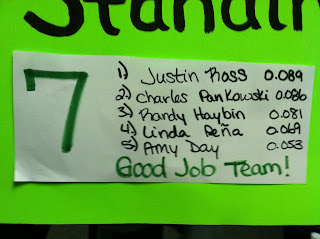 Standin
7
1) Justin Ross 0.089
2) Charles Pankowski 0.086
3) Randy Haybin 0.081
4) Linda Peña 0.069
5) Amy Day 0.053
Good Job Team!